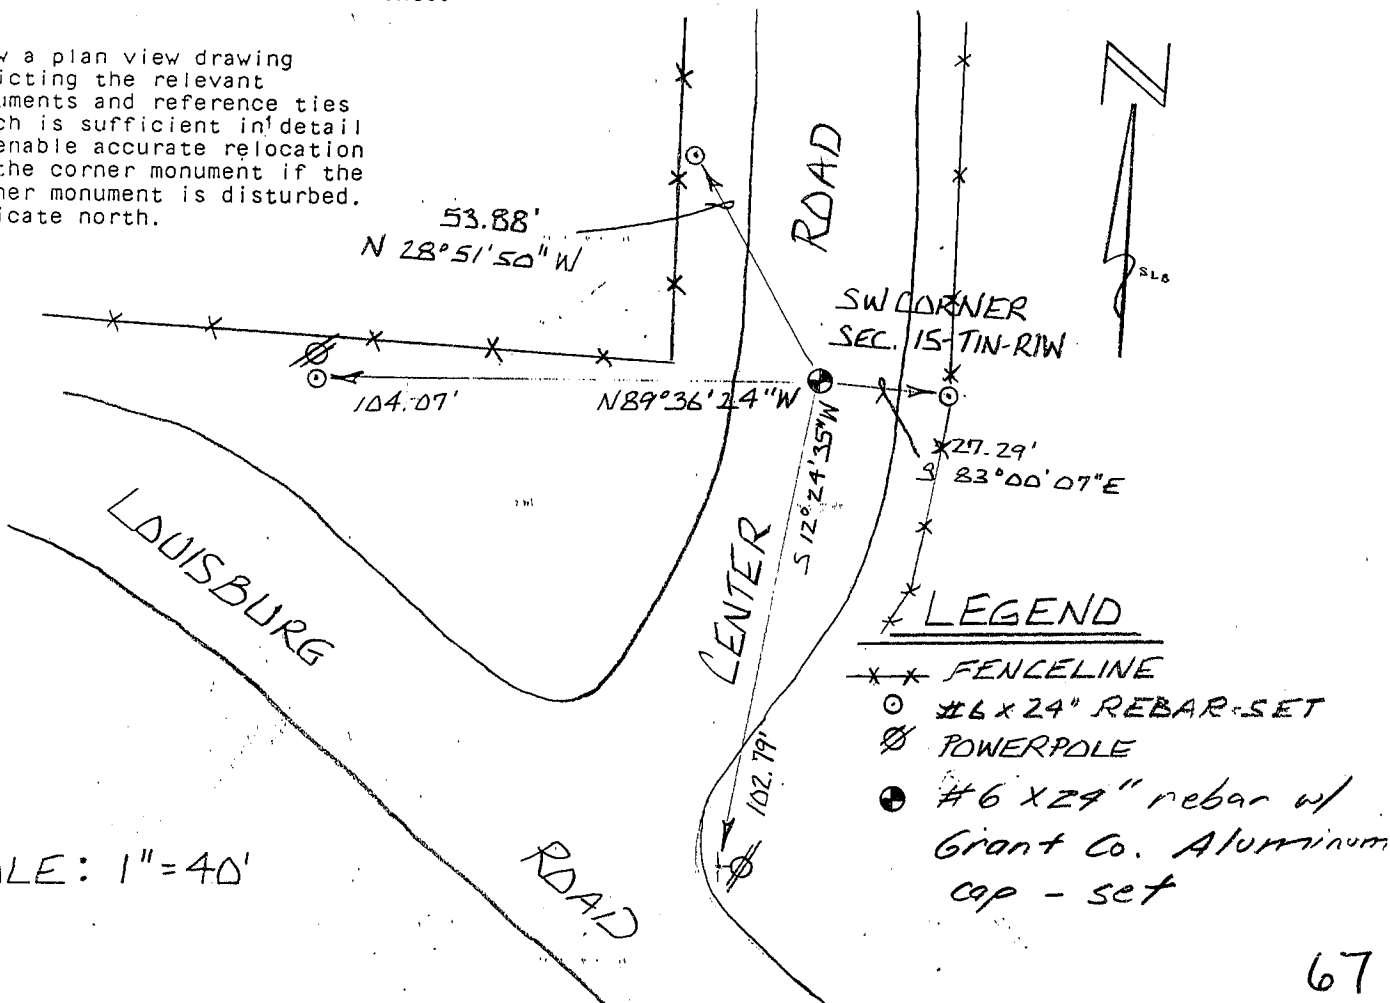 w a plan view drawing
icting the relevant
uments and reference ties
ch is sufficient in detail
enable accurate relocation
the corner monument if the
ner monument is disturbed.
icate north.
N
SLB
53.88'
N 28°51'50" W
ROAD
SW CORNER
SEC. 15-T1N-R1W
104.07'
N89°36'24"W
27.29'
S 83°00'07"E
S 12°24'35"W
102.79'
CENTER
LOUISBURG
ROAD
LEGEND
FENCELINE
#6 x 24" REBAR-SET
POWERPOLE
#6 x 24" rebar w/
Grant Co. Aluminum
cap - set
LE: 1"=40'
67